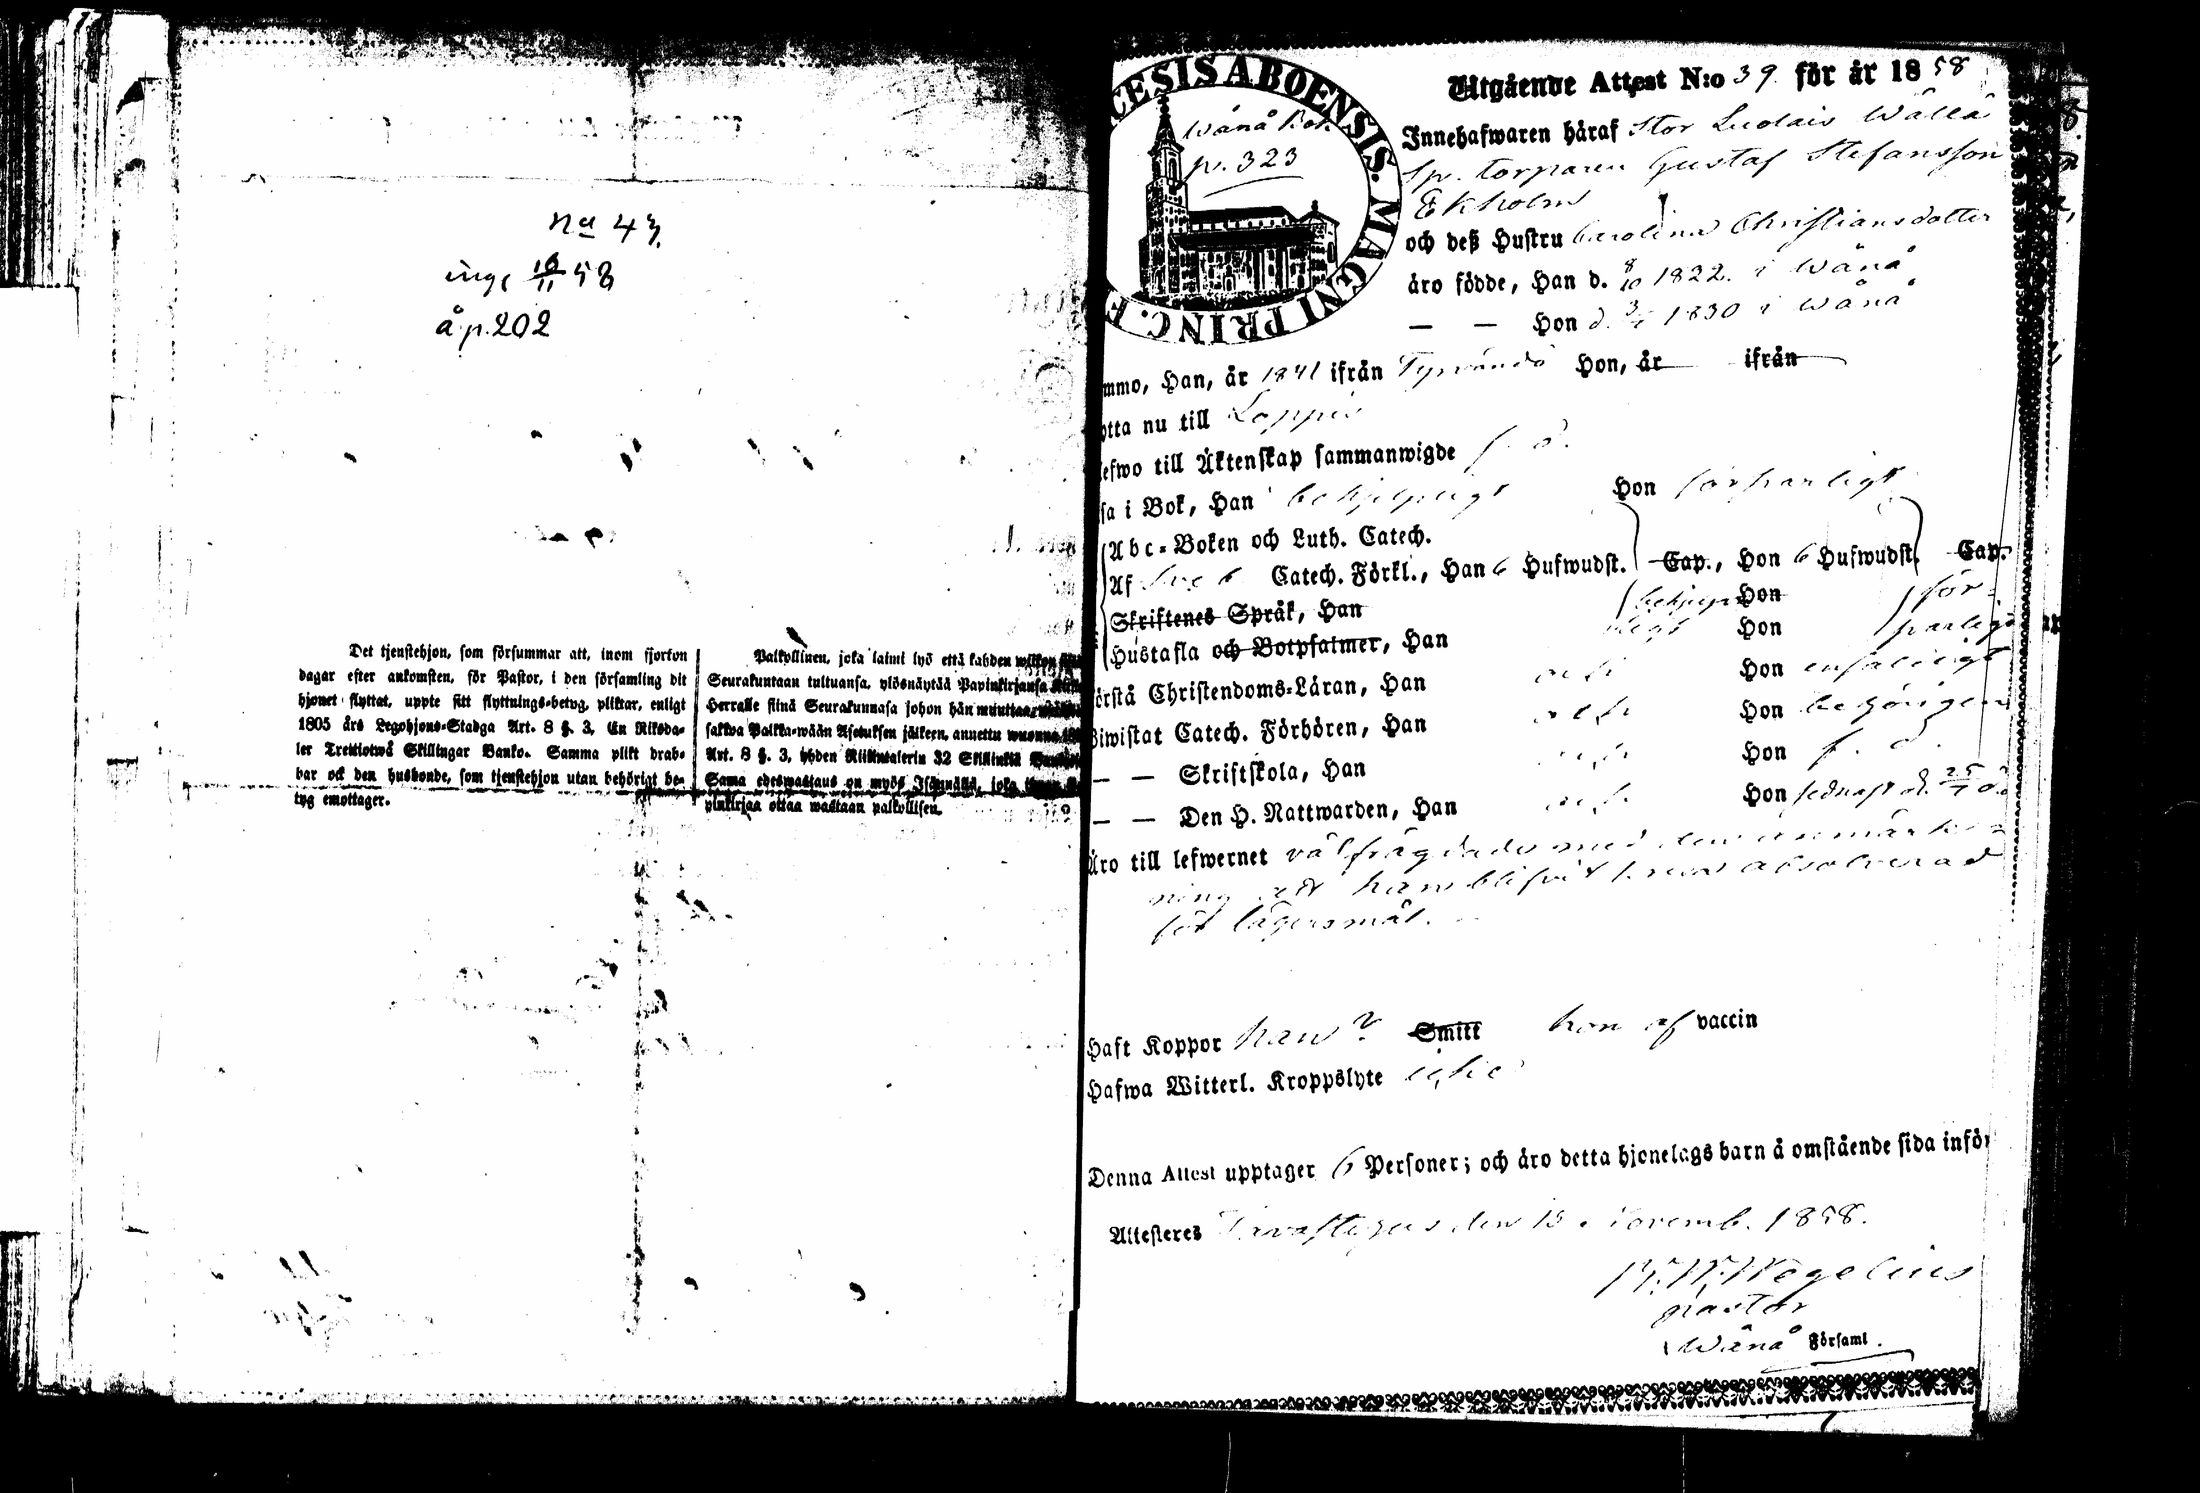 No 43.
ing. 16/11 58
å p. 202
Det tjenstehjon, som försummar att, inom fjorton
dagar efter ankomsten, för Pastor, i den församling dit
hjonet flyttat, uppte sitt flyttnings-betyg, pliktar, enligt
1805 års Legohjons-Stadga Art. 8 §. 3, En Riksda-
ler Trettiotwå Skillingar Banko. Samma plikt drab-
bar ock den husbonde, som tjenstehjon utan behörigt be-
tyg emottager.
Palkollinen, joka laimi lyö että kahden
Seurakuntaan tultuansa, ylösnäytää Papinkirjansa
Herralle siinä Seurakunnasa johon hän muuttaa,
sakwa Palkka-wään Asetuksen jälkeen, annettu wuonna
Art. 8 §. 3, yhden Riikintalerin 32 Skillinkiä
Sama edeswastaus on myös Isännällä, joka
pinkirjaa ottaa wastaan palkollisen.
CESIS ABOENSIS. MAGNI PRINC. F
Wånå Bok
p. 323
Utgående Attest N:o 39. för år 1858
Innehafwaren häraf Stor Luolais Wällä
sp. torparen Gustaf Stefansson
Ekholm
och deß Hustru Carolina Christiansdotter
äro födde, Han d. 8/10 1822. i Wånå
— — Hon d. 3/ 1830 i Wånå
mmo, Han, år 1841 ifrån Tyrwändö Hon, år ifrån
otta nu till Loppis
lefwo till Äktenskap sammanwigde f. å.
sa i Bok, Han behjelpligt Hon försvarligt
Abc-Boken och Luth. Catech.
Af Catech. Förkl., Han 6 Hufwudst. Cap., Hon 6 Hufwudst. Cap.
Skriftenes Språk, Han Hon för-
Hustafla och Botpsalmer, Han Hon
örstå Christendoms-Läran, Han Hon enfaldigt
Biwistat Catech. Förhören, Han Hon behörigen
— — Skriftskola, Han Hon f. d.
— — Den H. Nattwarden, Han Hon sednast d. 25/
Äro till lefwernet välfrägdade med den anmärk-
ning att han blifvit absolverad
för lägersmål.
Haft Koppor han? Smitt hon af vaccin
Hafwa Witterl. Kroppslyte icke
Denna Attest upptager 6 Personer; och äro detta hjonelags barn å omstående sida inför
Attesteres Tavastehus den 15 Novemb. 1858.
Wegelius
pastor
Wånå Församl.